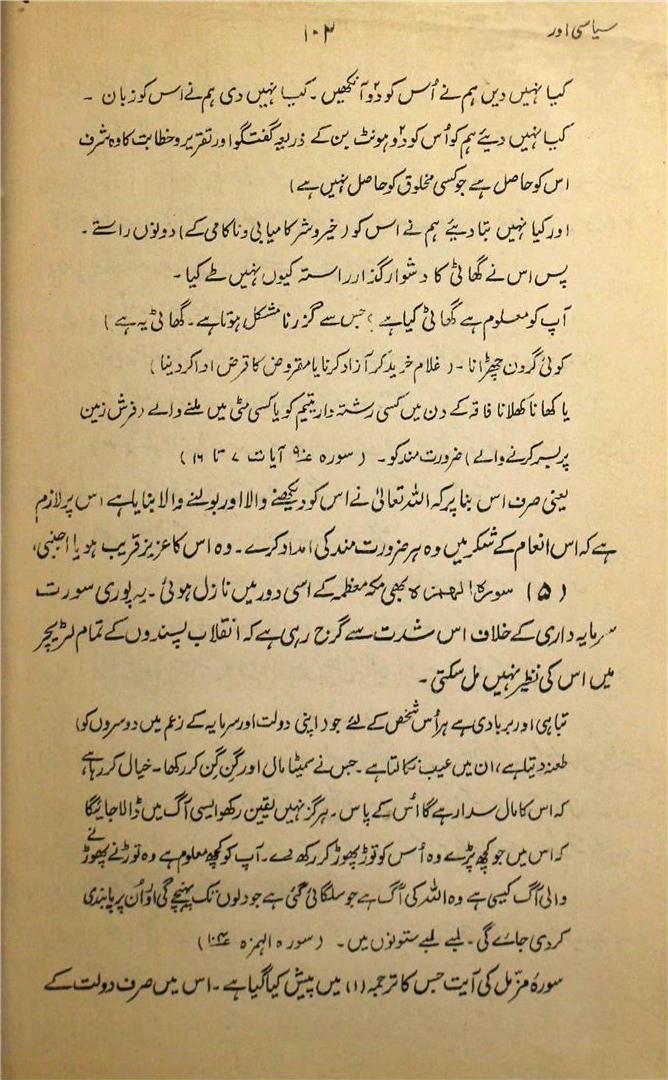 سیاسی اور
۱۰۳
کیا نہیں دیں ہم نے اُس کو دو۲ آنکھیں۔ کیا نہیں دی ہم نے اس کو زبان ۔
کیا نہیں دیئے ہم کو اُس کو دو۲ ہونٹ جن کے ذریعہ گفتگو اور تقریر و خطابت کا وہ شرف
اس کو حاصل ہے جو کسی مخلوق کو حاصل نہیں ہے)
اور کیا نہیں بتا دیئے ہم نے اس کو (خیر و شر کامیابی و ناکامی کے) دونوں راستے ۔
پس اس نے گھاٹی کا دشوار گذار راستہ کیوں نہیں طے کیا ۔
آپ کو معلوم ہے گھاٹی کیا ہے (جس سے گزرنا مشکل ہوتا ہے۔ گھاٹی یہ ہے )
کوئی گردن چھڑانا ۔ ( غلام خرید کر آزاد کرنا یا مقروض کا قرض ادا کردینا )
یا کھانا کھلانا فاقہ کے دن میں کسی رشتہ دار یتیم کو یا کسی مٹی میں ملنے والے (فرش زمین
پر بسر کرنے والے) ضرورت مند کو ۔ ( سورہ ع۹۰ آیات ۷ تا ۱۶ )
یعنی صرف اس بنا پر کہ اللہ تعالیٰ نے اس کو دیکھنے والا اور بولنے والا بنایا ہے اس پر لازم
ہے کہ اس انعام کے شکر میں وہ ہر ضرورت مند کی امداد کرے۔ وہ اس کا عزیز قریب ہو یا اجنبی،
(۵) سورۃ الھمزہ بھی مکہ معظمہ کے اسی دور میں نازل ہوئی ۔ یہ پوری سورت
سرمایہ داری کے خلاف اس شدت سے گرج رہی ہے کہ انقلاب پسندوں کے تمام لٹریچر
میں اس کی نظیر نہیں مل سکتی ۔
تباہی اور بربادی ہے ہر اُس شخص کے لئے جو (اپنی دولت اور سرمایہ کے زعم میں دوسروں کو)
طعنہ دیتا ہے، ان میں عیب نکالتا ہے ۔ جس نے سمیٹا مال اور گِن گِن کر رکھا ۔ خیال کر رہا ہے
کہ اس کا مال سدا رہے گا اُس کے پاس ۔ ہرگز نہیں یقین رکھو ایسی آگ میں ڈالا جائیگا
کہ اس میں جو کچھ پڑے وہ اُس کو توڑ پھوڑ کر رکھ دے ۔ آپ کو کچھ معلوم ہے وہ توڑنے پھوڑنے
والی آگ کیسی ہے وہ اللہ کی آگ ہے جو سلگائی گئی ہے جو دلوں تک پہنچے گی اور اُن پر پابندی
کردی جائے گی ۔ لمبے لمبے ستونوں میں ۔ ( سورہ الہمزہ ع۱۰۴)
سورۂ مزّمل کی آیت جس کا ترجمہ (۱) میں پیش کیا گیا ہے ۔ اس میں صرف دولت کے